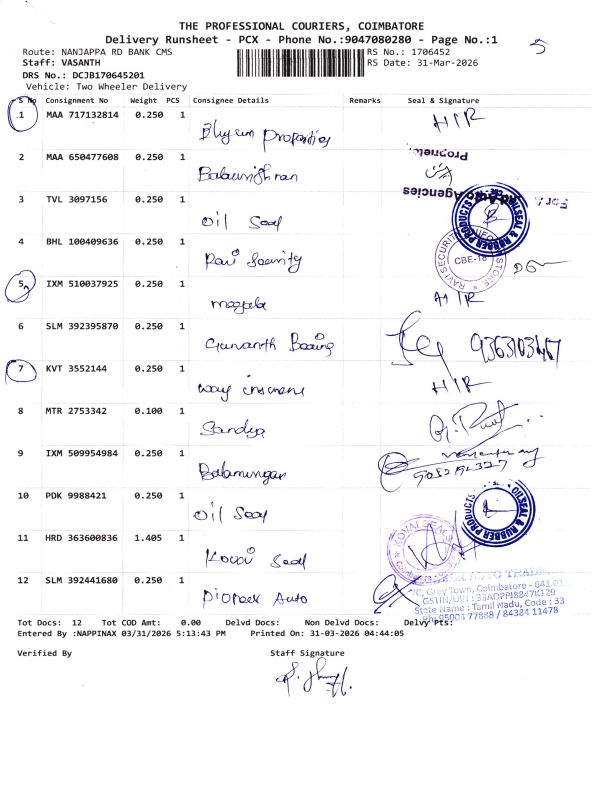 THE PROFESSIONAL COURIERS, COIMBATORE
Delivery Runsheet - PCX - Phone No.:9047080280 - Page No.:1
5
Route: NANJAPPA RD BANK CMS
RS No.: 1706452
Staff: VASANTH
RS Date: 31-Mar-2026
DRS No.: DCJB170645201
Vehicle: Two Wheeler Delivery
S No Consignment No Weight PCS Consignee Details Remarks Seal & Signature
1 MAA 717132814 0.250 1 Properties
2 MAA 650477608 0.250 1
Proprietor
3 TVL 3097156 0.250 1 Oil Seal
Agencies
OILSEAL & RUBBER PRODUCTS
4 BHL 100409636 0.250 1 Ravi Security
RAVI SECURITY
CBE-18
5 IXM 510037925 0.250 1
6 SLM 392395870 0.250 1
7 KVT 3552144 0.250 1 H/R
8 MTR 2753342 0.100 1 Sandiya
9 IXM 509954984 0.250 1 Balamurugan
10 PDK 9988421 0.250 1 Oil Seal
OILSEAL & RUBBER PRODUCTS
11 HRD 363600836 1.405 1 Kovai Seal
KOVAI SEALS
12 SLM 392441680 0.250 1 Pioneer Auto
AUTO TRADING
Grey Town, Coimbatore - 641 0
State Name : Tamil Nadu, Code : 33
Ph: 95004 77888 / 84384 11478
Tot Docs: 12 Tot COD Amt: 0.00 Delvd Docs: Non Delvd Docs: Delvy Pts:
Entered By :NAPPINAX 03/31/2026 5:13:43 PM Printed On: 31-03-2026 04:44:05
Verified By Staff Signature